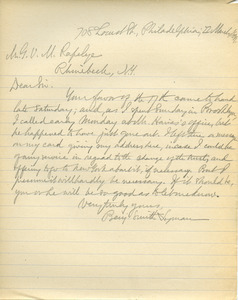 708 Locust St., Philadelphia, 22 March
Mr. G. V. M. Rapelye
Rhinebeck, N.Y.
Dear Sir.
Your favor of the 17th came to hand
late Saturday; and, as I spent Sunday in Brooklyn
I called early Monday at Mr. office, but
he happened to have just gone out. I left a
on my card giving my address here, in case I could be
in regard to the change of the and
if necessary. But I
presume it will hardly be necessary. If it should be,
you or he will be so good as to let me know.
Very truly yours,
Benj. Smith Lyman